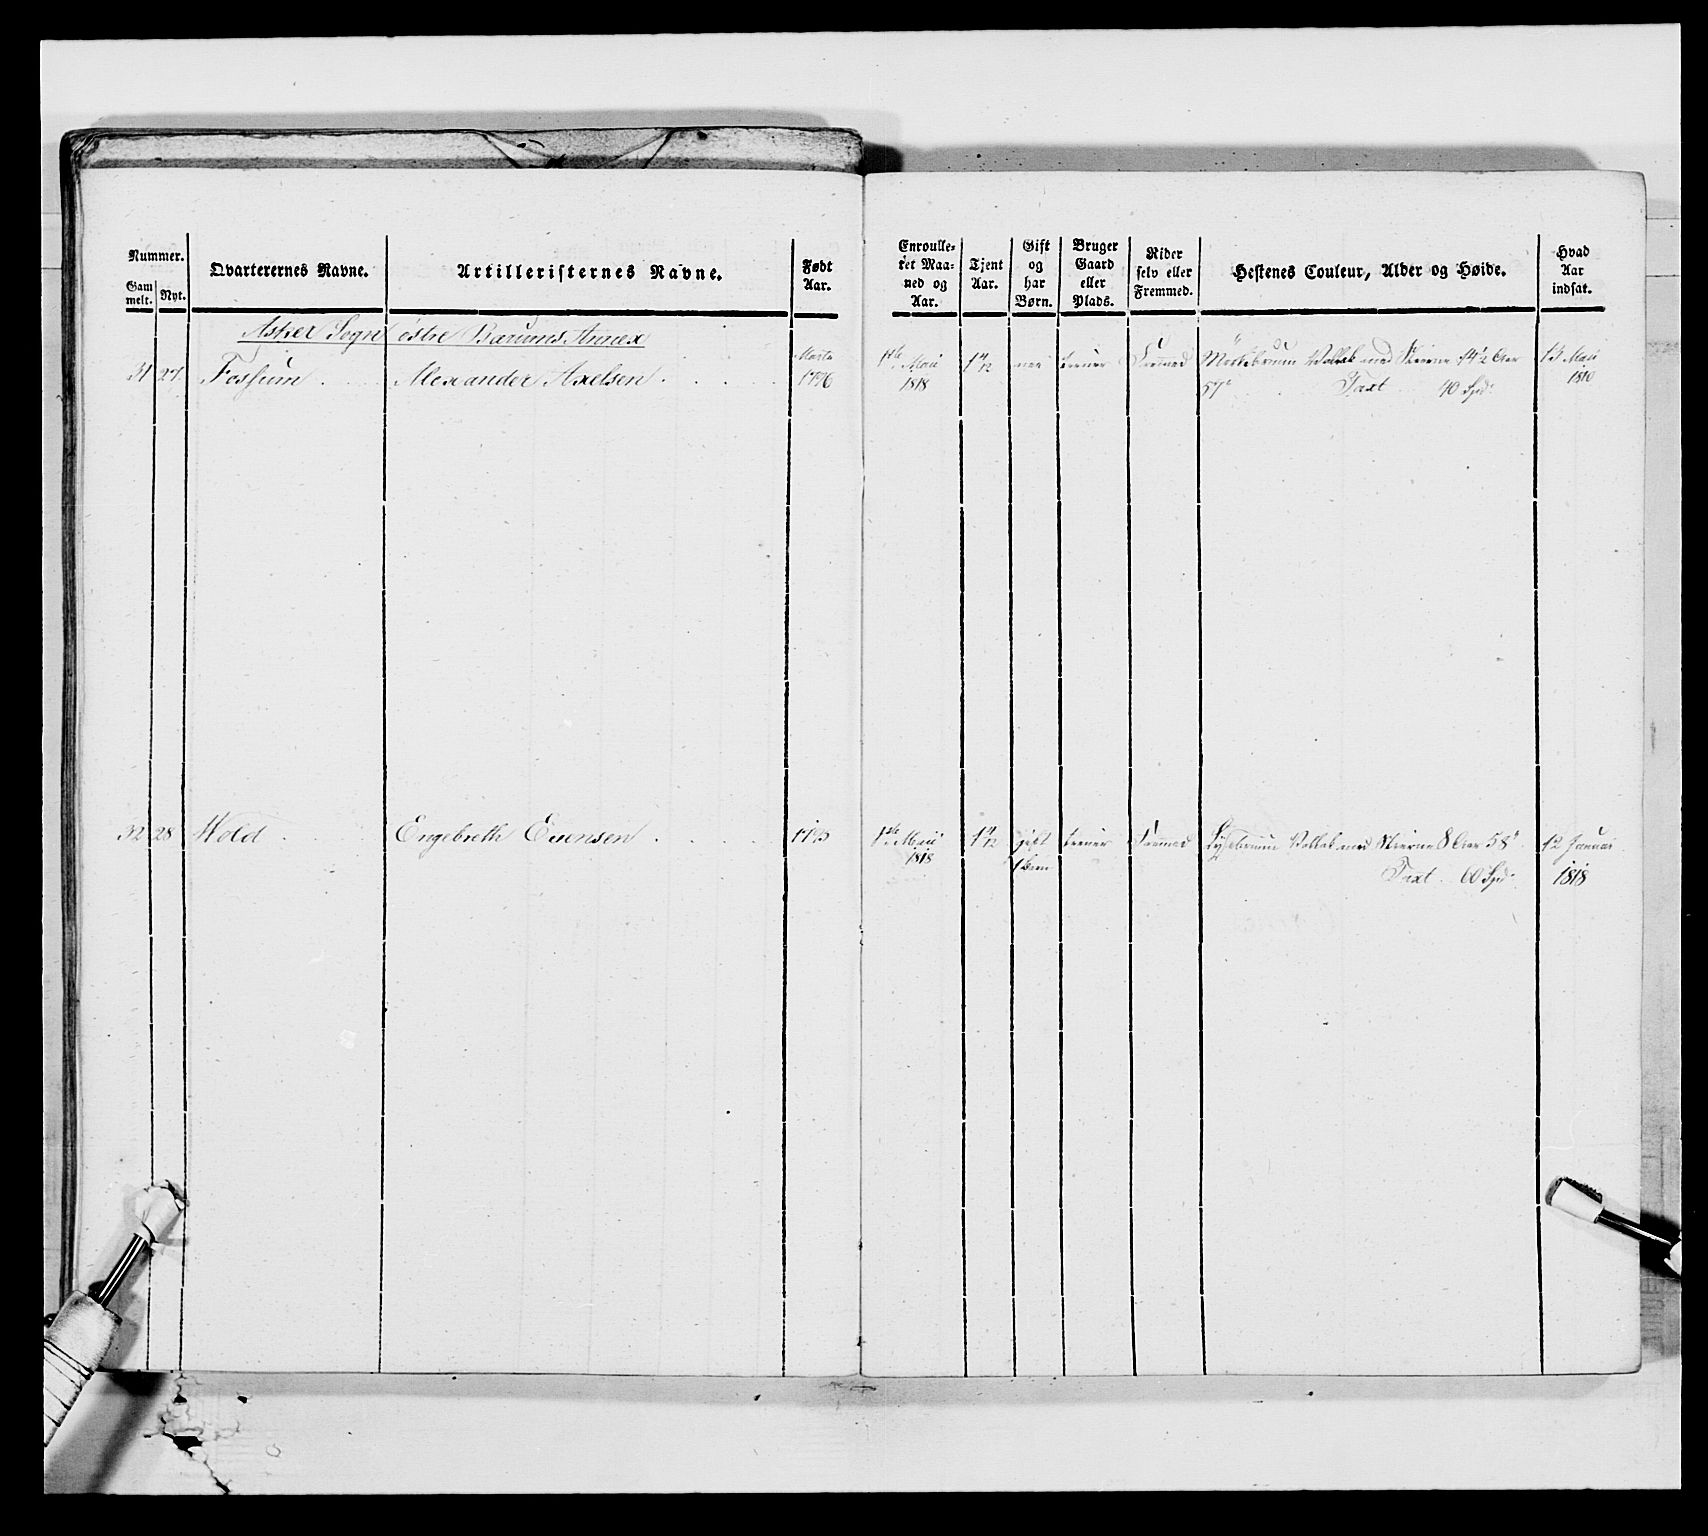 Nummer.
Gam
melt.
Nyt.
Qvarterernes Navne.
Artilleristernes Navne.
Født
Aar.
Enroulle-
ret Maa-
ned og
Aar.
Tjent
Aar.
Gift
og
har
Børn.
Bruger
Gaard
eller
Plads.
Rider
selv eller
Fremmed.
Hestenes Couleur, Alder og Høide.
Hvad
Aar
indsat.
Asker Sogn østre Bærums Annex
31 27. Fossum Alexander Axelsen Marts 1796 1ste Maii 1818 1 4/12 nei tiener Fremmed Mörkebruun Vallak med Stierne 14½ Aar 13 Maii
57" Taxt 40 Spd. 1810
32 28 Wold Engebreth Evensen 1795 1ste Maii 1818 1 4/12 gift 1 barn tiener Fremmed Lysebruun Vallak med Stierne 8 Aar 58" 12 Januar
Taxt 60 Spd. 1818